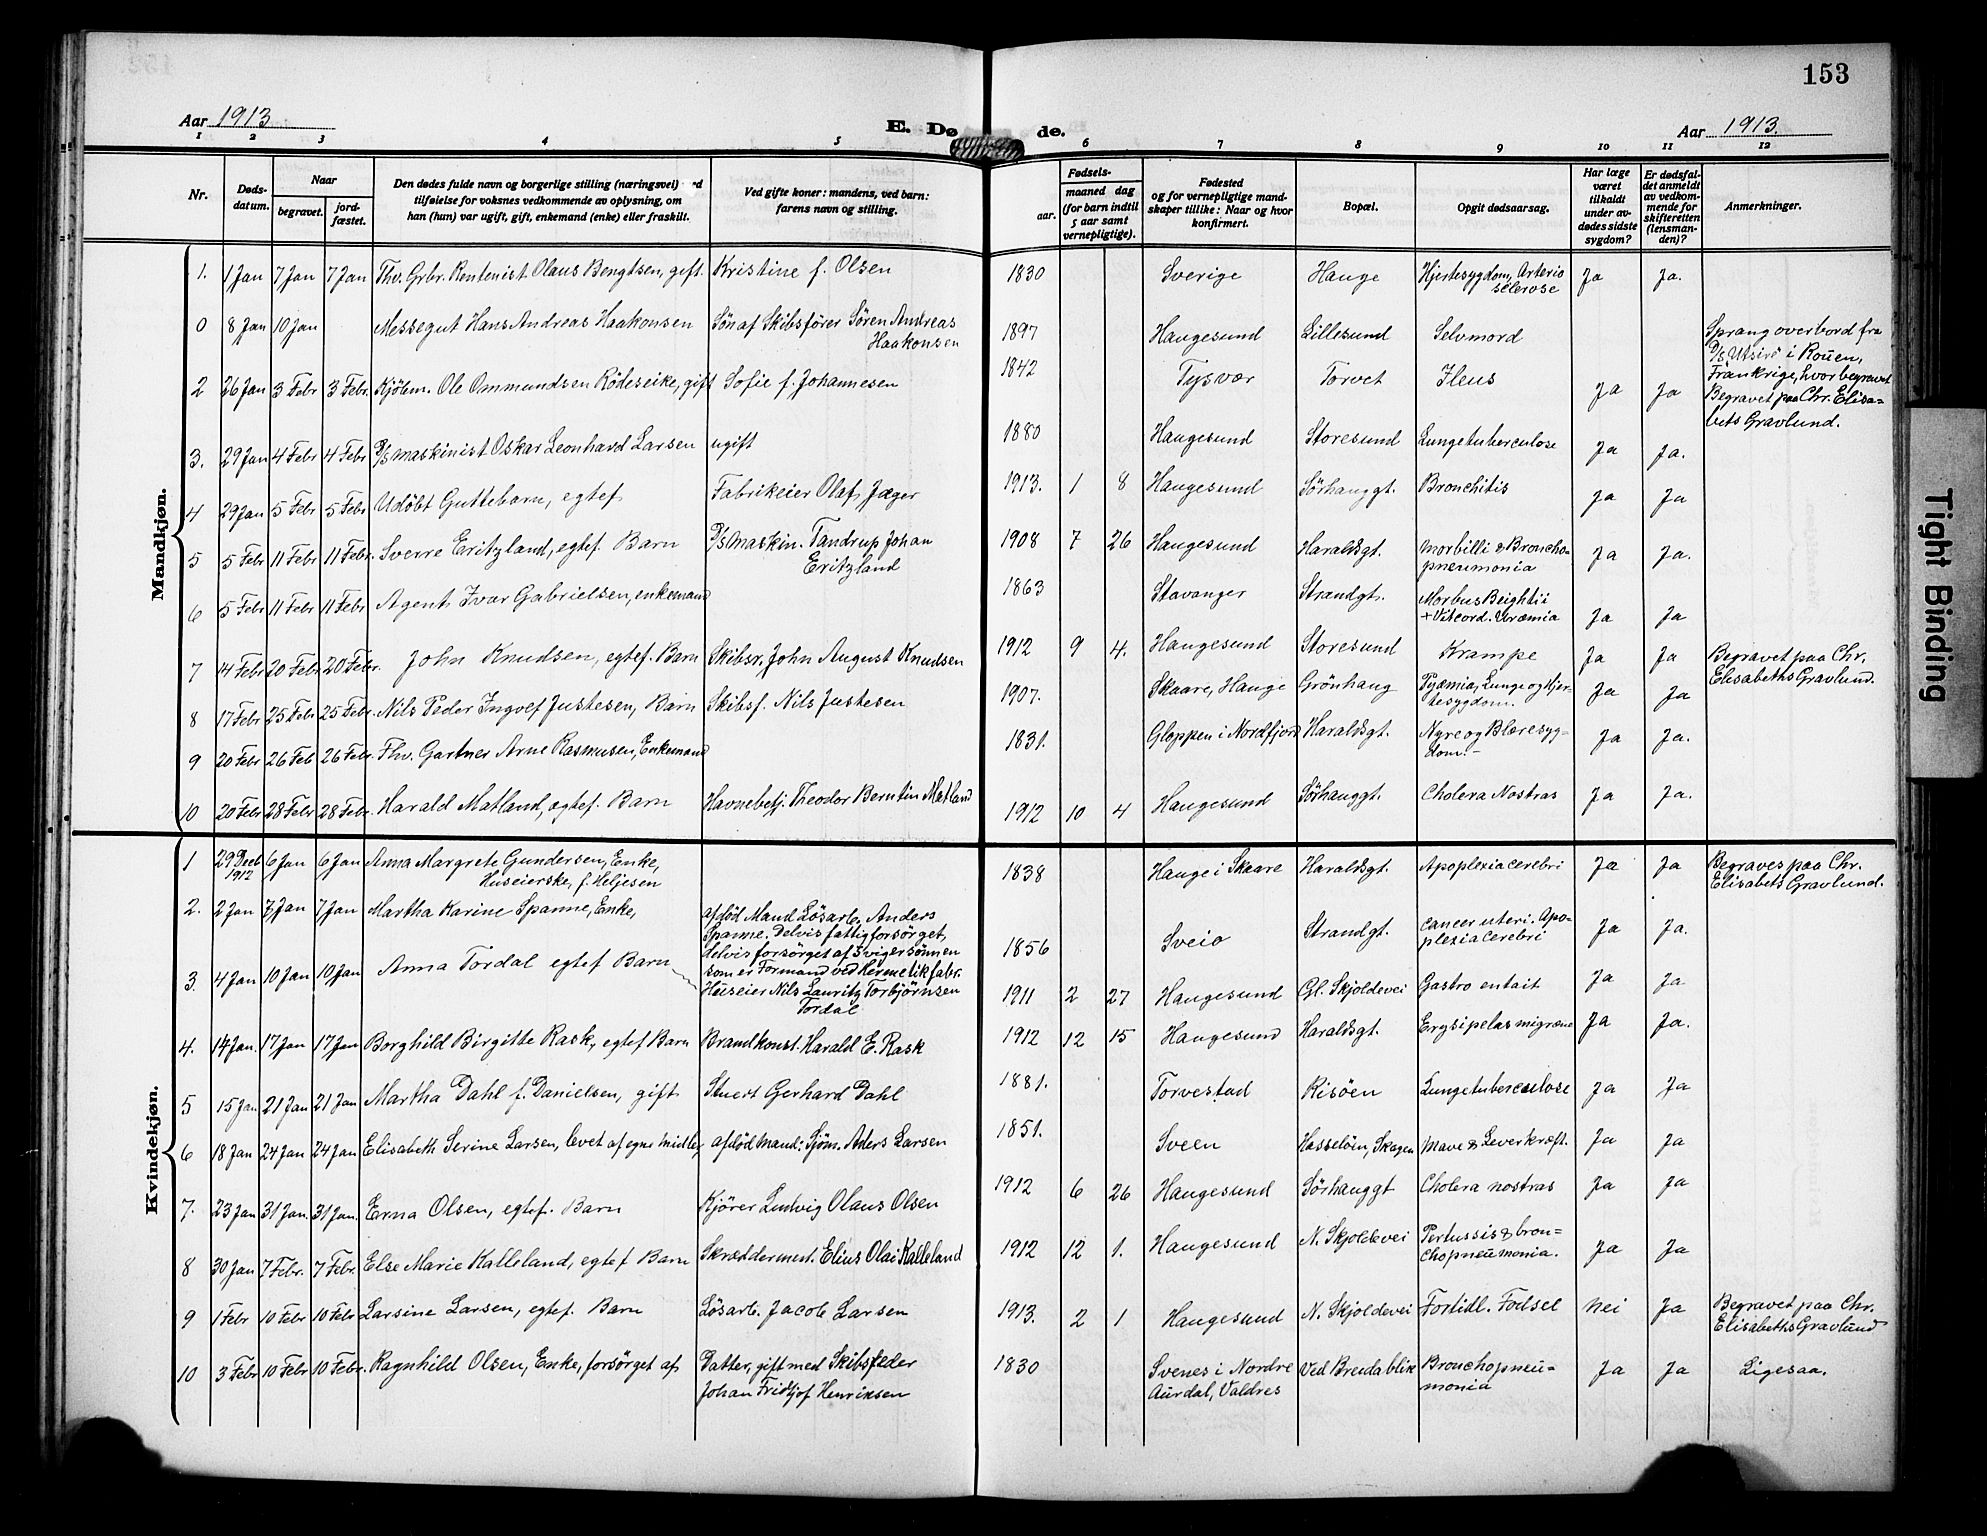 153
Aar 1913
E. Dø de.
Aar 1913.
1 2 3 4 5 6 7 8 9 10 11 12
Nr.
Døds-
datum.
Naar
begravet.
jord-
fæstet.
Den dødes fulde navn og borgerlige stilling (næringsvei)
tilføielse for voksnes vedkommende av oplysning, om
han (hun) var ugift, gift, enkemand (enke) eller fraskilt.
Ved gifte koner: mandens, ved barn:
farens navn og stilling.
Fødsels-
aar.
maaned dag
(for barn indtil
5 aar samt
vernepligtige).
Fødested
og for vernepligtige mand-
skaper tillike: Naar og hvor
konfirmert.
Bopæl.
Opgit dødsaarsag.
Har læge
været
tilkaldt
under av-
dødes sidste
sygdom?
Er dødsfal-
det anmeldt
av vedkom-
mende for
skifteretten
(lensman-
den)?
Anmerkninger.
Mandkjøn.
1. 1 Jan 7 Jan 7 Jan Thv. Grbr. Rentenist Olaus Bengtsen, gift. Kristine f. Olsen 1830 Sverige Hauge Hjertesygdom, Arterio Ja Ja.
sclerose
0 8 Jan 10 Jan Messegut Hans Andreas Haakonsen Søn af Skibsfører Søren Andreas 1897 Haugesund Lillesund Selvmord Sprang overbord fra
Haakonsen D/S Utsire i Rouen,
Frankrige, hvor begravet
2 26 Jan 3 Febr 3 Febr. Kjøbm. Ole Ommundsen Rödeseike, gift Sofie f. Johannesen 1842 Tysvær Torvet Ileus Ja Ja Begravet paa Chr. Elisa-
bets Gravlund.
3. 29 Jan 4 Febr 4 Febr D/S maskinist Oskar Leonhard Larsen ugift 1880 Haugesund Storesund Lungetuberculose Ja Ja.
4 29 Jan 5 Febr 5 Febr Udöbt Guttebarn, egtef Fabrikeier Olaf Jæger 1913. 1 8 Haugesund Sörhauggt. Bronchitis Ja Ja
5 5 Febr 11 Febr 11 Febr. Sverre Eritzland, egtef. Barn D/S maskin. Tandrup Johan 1908 7 26 Haugesund Haraldsgt. Morbilli & Broncho- Ja Ja.
Eritzland pneumonia
6 5 Febr 11 Febr 11 Febr Agent Ivar Gabrielsen, enkemand 1863 Stavanger Strandgt. Morbus Beightii Ja Ja
+ Vit cord. Uræmia
7 14 Febr 20 Febr 20 Febr. John Knudsen, egtef. Barn Skibsr. John August Knudsen 1912 9 4. Haugesund Storesund Krampe Ja Ja Begravet paa Chr.
Elisabeths Gravlund.
8 17 Febr 25 Febr 25 Febr. Nils Peder Ingvolf Justesen, Barn Skibsf. Nils Justesen 1907. Skaare, Hauge Grönhaug Pyæmia, Lunge og Hjer- Ja Ja
tesygdom.
9 20 Febr 26 Feb 26 Febr. Thv. Gartner Arne Rasmusen, Enkemand 1831. Gloppen i Nordfjord Haraldsgt. Nyre og Blæresyg- Ja Ja.
dom. -
10 20 Febr 28 Febr 28 Febr. Harald Matland, egtef. Barn Havnebetj. Theodor Berntin Matland 1912 10 4 Haugesund Sörhauggt. Cholera Nostras Ja Ja.
Kvindekjøn.
1 29 Decb 6 Jan 6 Jan Anna Margrete Gundersen, Enke, 1838 Hauge i Skaare Haraldsgt. Apoplexia cerebri Ja Ja Begraves paa Chr.
1912 Huseierske, f. Heljesen Elisabets Gravlund.
2. 2 Jan 7 Jan 7 Jan Martha Karine Spanne, Enke, afdöd Mand Lösarb. Anders 1856 Sveio Strandgt. cancer uteri. Apo- Ja Ja.
Spanne. Delvis fattigforsörget, plexia cerebri
delvis forsörget af Svigersönnen
som er Formand ved Hermetikfabr.
3. 4 Jan 10 Jan 10 Jan Anna Tordal egtef Barn Huseier Nils Lauritz Torbjørnsen 1911 2 27 Haugesund Gl. Skjoldevei Gastro entait Ja Ja
Tordal
4. 14 Jan. 17 Jan 17 Jan Borghild Birgitte Rask, egtef Barn Brandkonst. Harald E. Rask 1912 12 15 Haugesund Haraldsgt. Erysipelas migræne Ja Ja.
5 15 Jan 21 Jan 21 Jan Martha Dahl f. Danielsen, gift Stuert Gerhard Dahl 1881. Torvestad Risöen Lungetuberculose Ja Ja
6 18 Jan 24 Jan 24 Jan Elisabeth Serine Larsen, levet af egne midler, afdöd mand: Sjöm. Aders Larsen 1851. Sveen Hasselöin, Skagen Mave & Leverkræft. Ja Ja
7. 23 Jan 31 Jan. 31 Jan. Erna Olsen, egtef. Barn Kjörer Ludvig Olaus Olsen 1912 6 26 Haugesund Sörhauggt Cholera nostras Ja Ja
8 30 Jan 7 Febr. 7 Febr. Else Marie Kalleland, egtef Barn Skræddermest. Elius Olai Kalleland 1912 12 1. Haugesund N. Skjoldevei Pertussis & bron- Ja Ja
chopneumonia.
9 1 Febr 10 Febr 10 Febr Larsine Larsen, egtef. Barn Lösarb. Jacob Larsen 1913. 2 1 Haugesund N. Skjoldevei Fortidl. Fodsel Nei Ja Begravet paa Chr.
Elisabeths Gravlund
10 3 Febr 10 Febr 10 Febr. Ragnhild Olsen, Enke, forsörget af Datter, gift med Skibsfeder 1830 Svenes i Nordre Ved Breidablik Bronchopneu- Ja Ja Ligesaa.
Johan Fridtjof Henriksen Aurdal, Valdres monia
Tight Binding